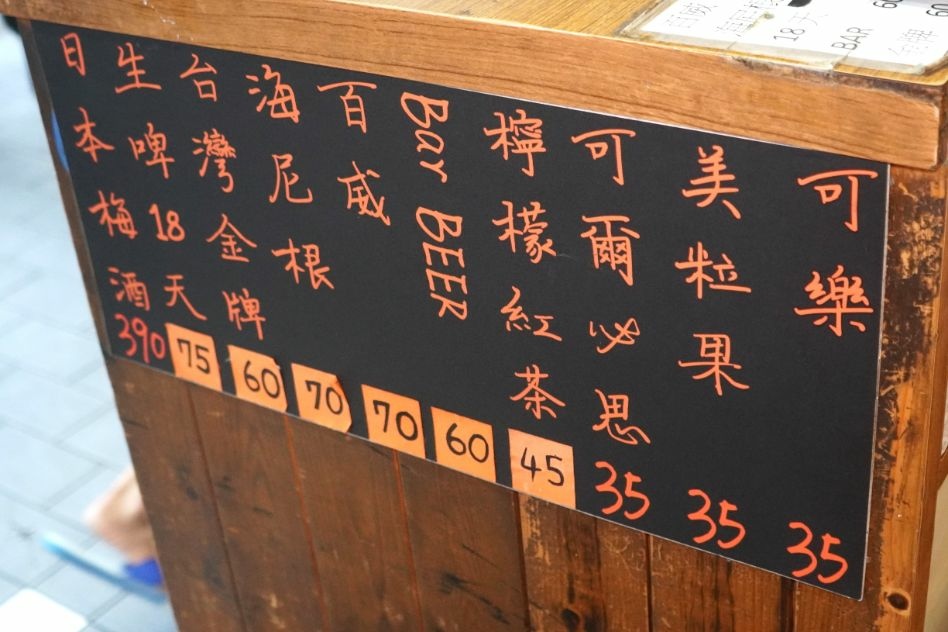 18天
BAR
60
可樂 35
美粒果 35
可爾必思 35
檸檬紅茶 45
Bar BEER 60
百威 70
海尼根 70
台灣金牌 60
生啤18天 75
日本梅酒 390